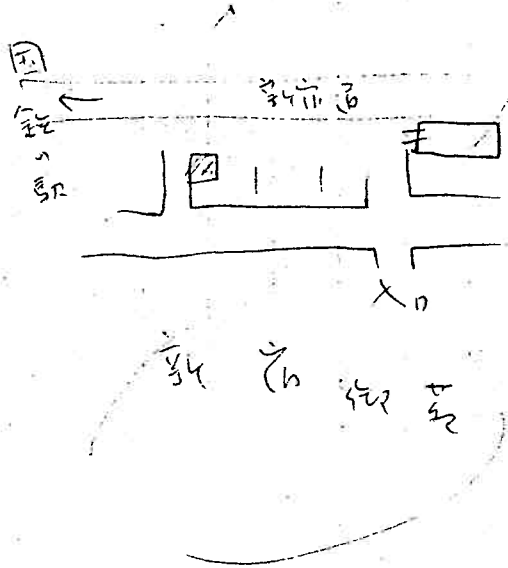 国
鉄
の
駅
新宿通
入口
新宿御苑